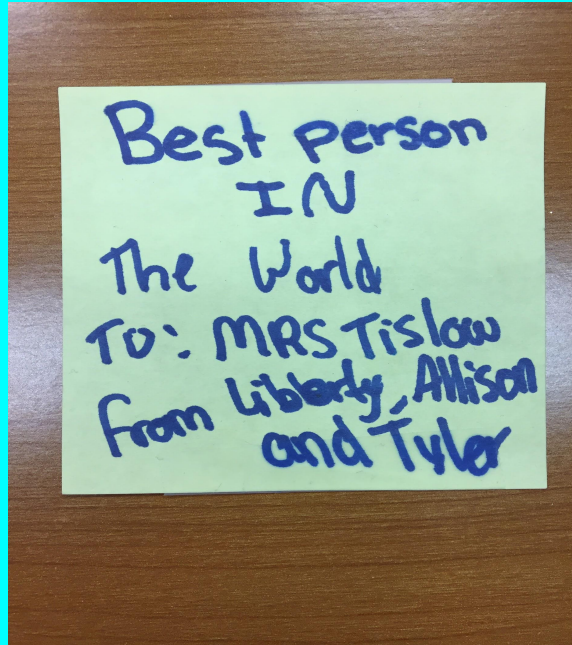 Best person
IN
The World
TO: MRS Tislow
from Libberty, Allison
and Tyler